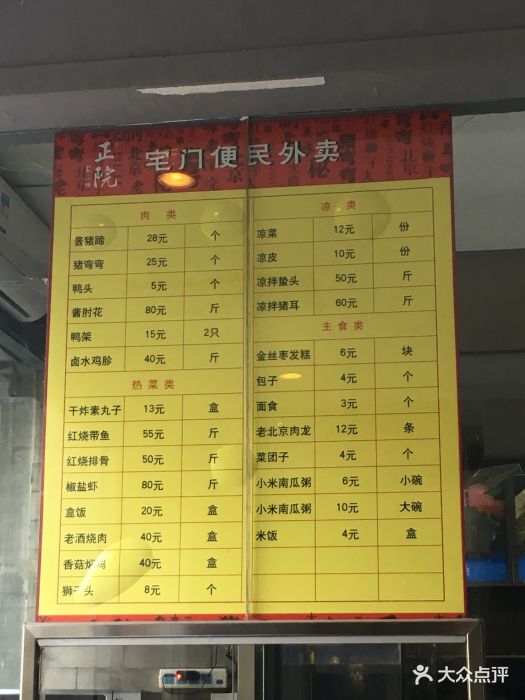 正院
宅门便民外卖
肉 类
酱猪蹄 28元 个
猪弯弯 25元 个
鸭头 5元 个
酱肘花 80元 斤
鸭架 15元 2只
卤水鸡胗 40元 斤
热菜类
干炸素丸子 13元 盒
红烧带鱼 55元 斤
红烧排骨 50元 斤
椒盐虾 80元 斤
盒饭 20元 盒
老酒烧肉 40元 盒
香菇焖鸡 40元 盒
狮子头 8元 个
凉 类
凉菜 12元 份
凉皮 10元 份
凉拌蛰头 50元 斤
凉拌猪耳 60元 斤
主食类
金丝枣发糕 6元 块
包子 4元 个
面食 3元 个
老北京肉龙 12元 条
菜团子 4元 个
小米南瓜粥 6元 小碗
小米南瓜粥 10元 大碗
米饭 4元 盒
大众点评